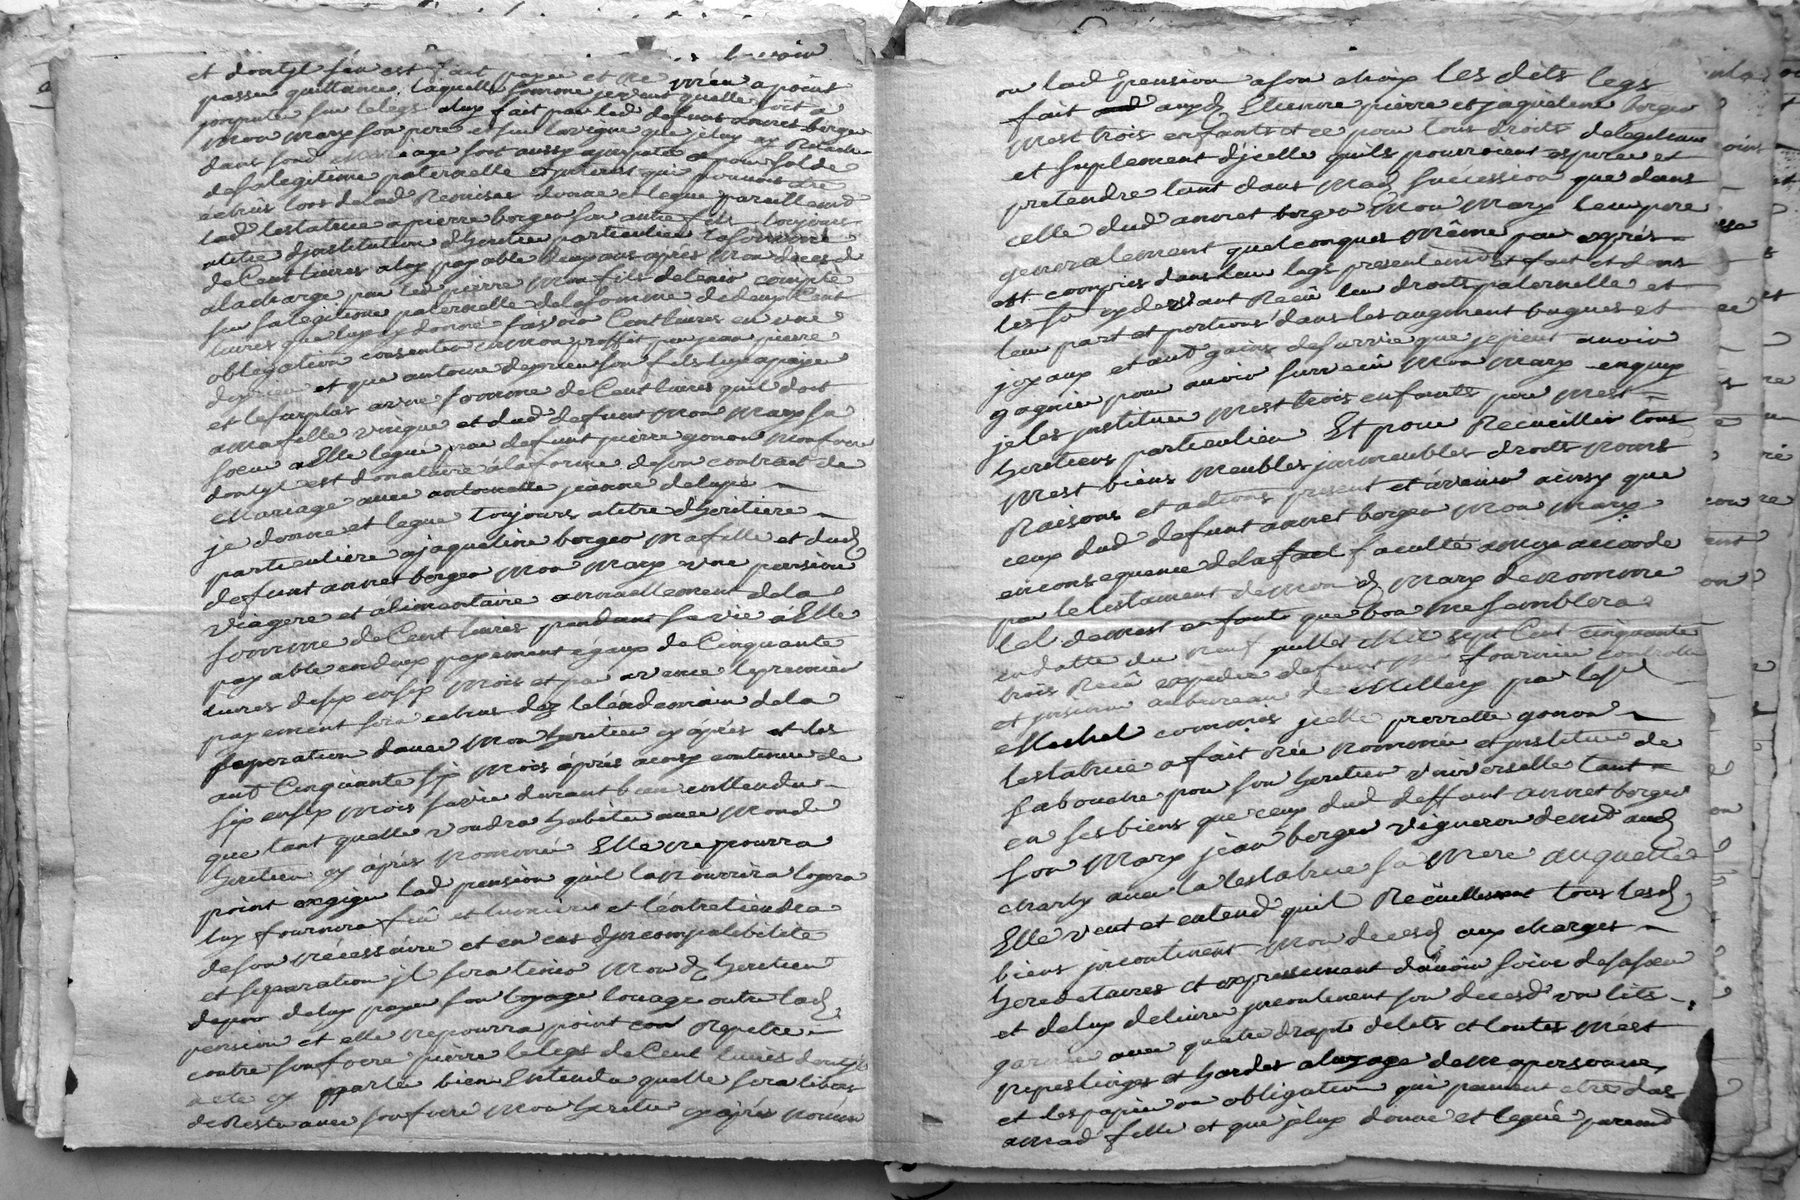 besoin
et dont jl sera est fait payé et ne m'en a point
passé quittance, laquelle somme je veut quelle soit
jmputé sur le legs a luy fait par led defunt annet berger
mon mary son pere et sur lorigne que je luy ay Relaché
dans sond mariage soit aussy ajmputé et pour solde
de sa legitime paternelle
lad testatrice a pierre berger son autre fils toujours
a titre djnstitution dheritier particulier la somme
de Cent livres a luy payable deux ans après mon deced
a la charge par led pierre mon fils de tenir compte
sur sa legitime paternelle de la somme de deux Cent
livres que luy ay donné sçavoir Cent livres en une
obligation consentie en mon proffit par jean pierre
et que antoine son fils luy a payé
et le surplus en une somme de Cent livres quil doit
a ma fille vnique et dud defunt mon mary sa
soeur a Elle legué par defunt pierre gonon mon frere
dont jl est donataire a la forme de son contract de
Mariage avec antoinette jeanne delupé
je donne et legue toujours a titre dheritiere
particuliere a jaqueline berger ma fille et dud
defunt annet berger mon mary vne pension
viagere et alimentaire annuellement de la
somme de Cent livres pendant sa vie a Elle
payable en deux payement égaux de Cinquante
livres de six en six mois et par avance le premier
payement sera echus dez le lendemain de la
separation d'avec mon heritier cy après et les
aut Cinquante six mois après ainsy continue de
six en six mois sa vie durant bien entendu
que tant quelle voudra habiter avec mond
heritier cy après nommé Elle ne pourra
point exgiger lad pension quil la nourrira logera
luy fournira feu et lumiere et l'entretiendra
de son nécessaire et en cas djncompatibilité
et separation jl sera tenu mon d heritier
de luy payer son loyage louage outre lad
pension et elle ne pourra point Repeter
contre son frere pierre le legs de Cent livres dont jl
a été cy parlé bien Entendu quelle sera libre
de Rester avec son frere mon heritier cy après nommé
ou lad pension a son choix les dits legs
fait auxd Etienne pierre et jaqueline berger
mest trois enfants et ce pour tous droits de legitime
et suplement djcelle quils pourroient esperer et
pretendre tant dans mad succession que dans
celle dud annet berger mon mary leur pere
generalement quelconques même par exprés
est compris dans leur legs presentement fait et dans
les st cy devant Recû leur droits paternelle et
leur part et portions dans les augment bagues et
joyaux et aut gains de survie que je peut avoir
gagnier pour avoir survecû mon mary en quoy
je les jnstitue mest trois enfants pour mest
heritiers particulier Et pour Recueillir tous
mest biens meubles jmmeubles droits noms
Raisons et actions present et avenir ainsy que
ceux dud defunt annet berger mon mary
en consequence de la faculté a moy accordé
par le testament de mon d mary de nommer
tel de mest enfants que bon me semblera
en datte du neuf juillet mil sept Cent cinquante
trois Recû expedié defunt fournier controllé
et jnsinué au bureau de Millery par le sr
Michel commis jcelle pierrette gonon
testatrice a fait crée nommé et jnstitue de
sa bouche pour son heritier vniverselle tant
en ses biens que ceux dud deffunt annet berger
son mary jean berger vigneron demt aud
charly avec la testatrice sa mere auquelle
Elle veut et entend quil Recûeillement tous lesd
biens jncontinent mon deced aux charges
hereditaires et expressement d'avoir soin de sa soeur
et de luy delivrer jncontinent son deced vn lits
garnie avec quatre draps de lits et toutes mest
nipes linges et hardes a lusage de ma personne
et les papier ou obligation qui peuvent etre das
a mad fille et que je luy donne et legué